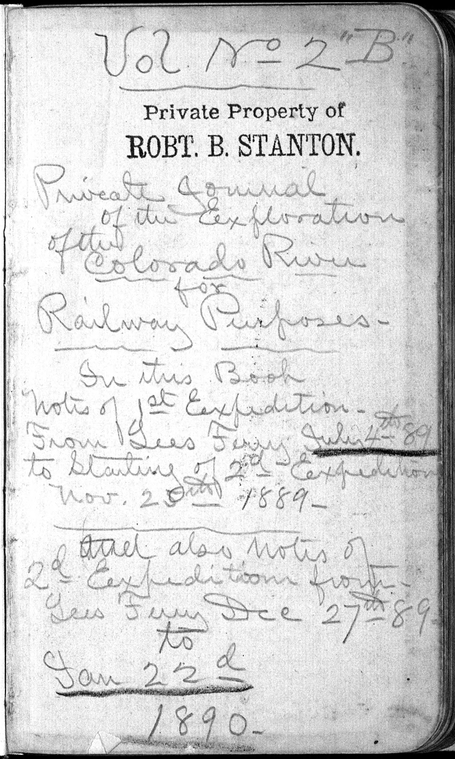 Vol. No 2 "B."
Private Property of
ROBT. B. STANTON.
Private Journal
of the Exploration
of the
Colorado River
for
Railway Purposes-
In this Book
Notes of 1st Expedition-
From Lees Ferry July 4th 89
to Starting of 2d Expedition
Nov. 25th 1889-
And also Notes of
2d Expedition from-
Lees Ferry Dec 27th 89-
to
Jan 22d
1890-